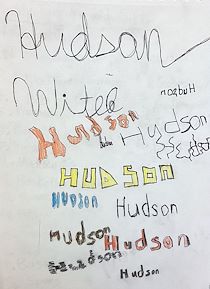 Hudson
Hudson
Hudson
Hudson
Hudson
HUDSON
HUDSON
Hudson
Hudson
Hudson
Hudson
Hudson